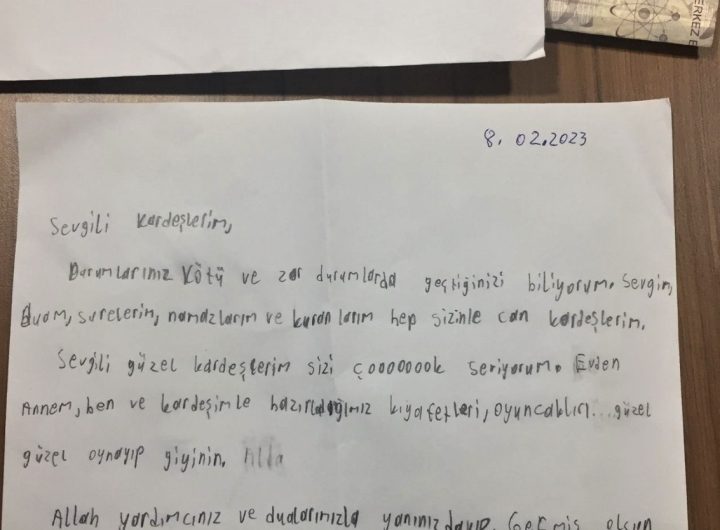 ERKEZ B
8. 02.2023
Sevgili kardeşlerim,
Durumlarınız kötü ve zor durumlarda geçtiğinizi biliyorum. Sevgim,
Duam, surelerim, namazlarım ve kuranlarım hep sizinle can kardeşlerim.
Sevgili güzel kardeşlerim sizi çoooooook seviyorum. Evden
Annem, ben ve kardeşimle hazırladığımız kıyafetleri, oyuncakları... güzel
güzel oynayıp giyinin. Alla
Allah yardımcınız ve dualarımızla yanınızdayız. Geçmiş olsun